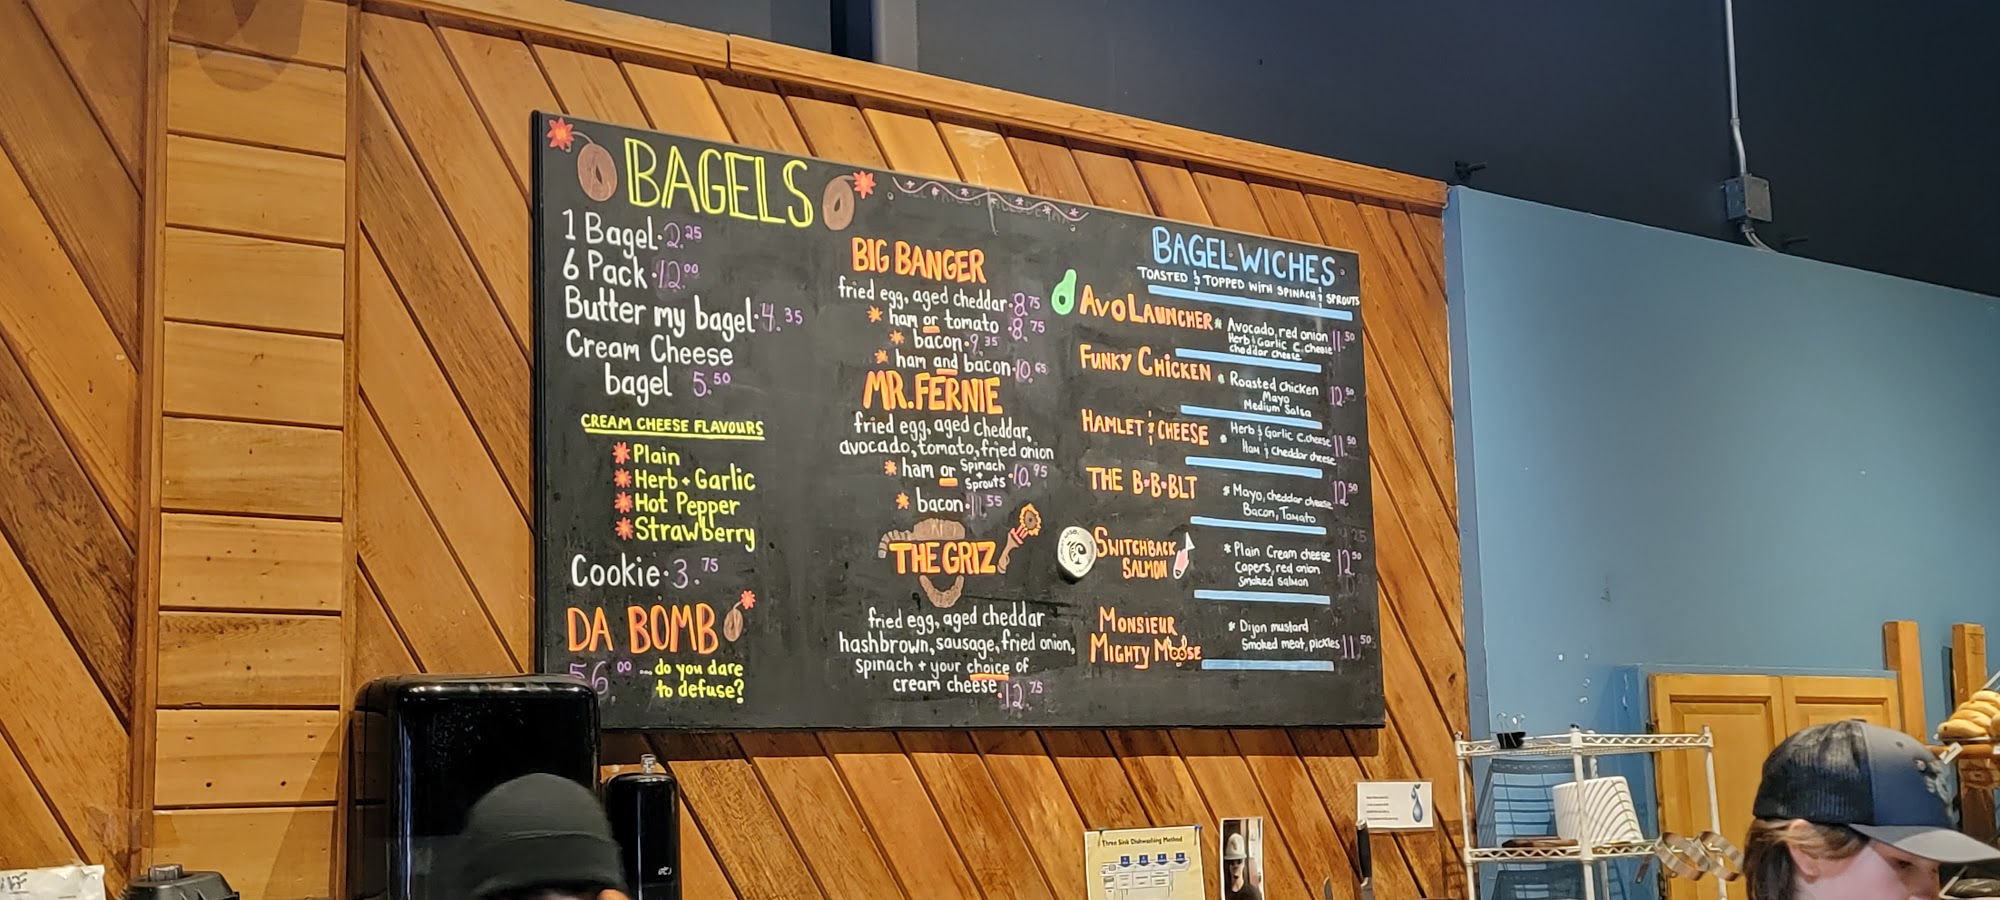 BAGELS
1 Bagel · 2.25
6 Pack · 12.00
Butter my bagel · 4.35
Cream Cheese
bagel 5.50
CREAM CHEESE FLAVOURS
* Plain
* Herb + Garlic
* Hot Pepper
* Strawberry
Cookie · 3.75
DA BOMB
56.00 ... do you dare
to defuse?
BIG BANGER
fried egg, aged cheddar · 8.75
* ham or tomato · 8.75
* bacon · 9.35
* ham and bacon · 10.65
MR. FERNIE
fried egg, aged cheddar,
avocado, tomato, fried onion
* ham or Spinach + Sprouts · 10.95
* bacon · 11.55
THE GRIZ
fried egg, aged cheddar
hashbrown, sausage, fried onion,
spinach + your choice of
cream cheese · 12.75
BAGELWICHES
TOASTED & TOPPED WITH SPINACH & SPROUTS
AVO LAUNCHER * Avocado, red onion 11.50
Herb & Garlic C.cheese
cheddar cheese
FUNKY CHICKEN * Roasted chicken 12.50
Mayo
Medium Salsa
HAMLET & CHEESE * Herb & Garlic C.cheese 11.50
Ham & cheddar cheese
THE B·B·BLT * Mayo, cheddar cheese 12.50
Bacon, Tomato
SWITCHBACK
SALMON
* Plain Cream cheese 12.50
Capers, red onion
Smoked salmon
MONSIEUR
MIGHTY MOOSE
* Dijon mustard
Smoked meat, pickles 11.50
Three Sink Dishwashing Method